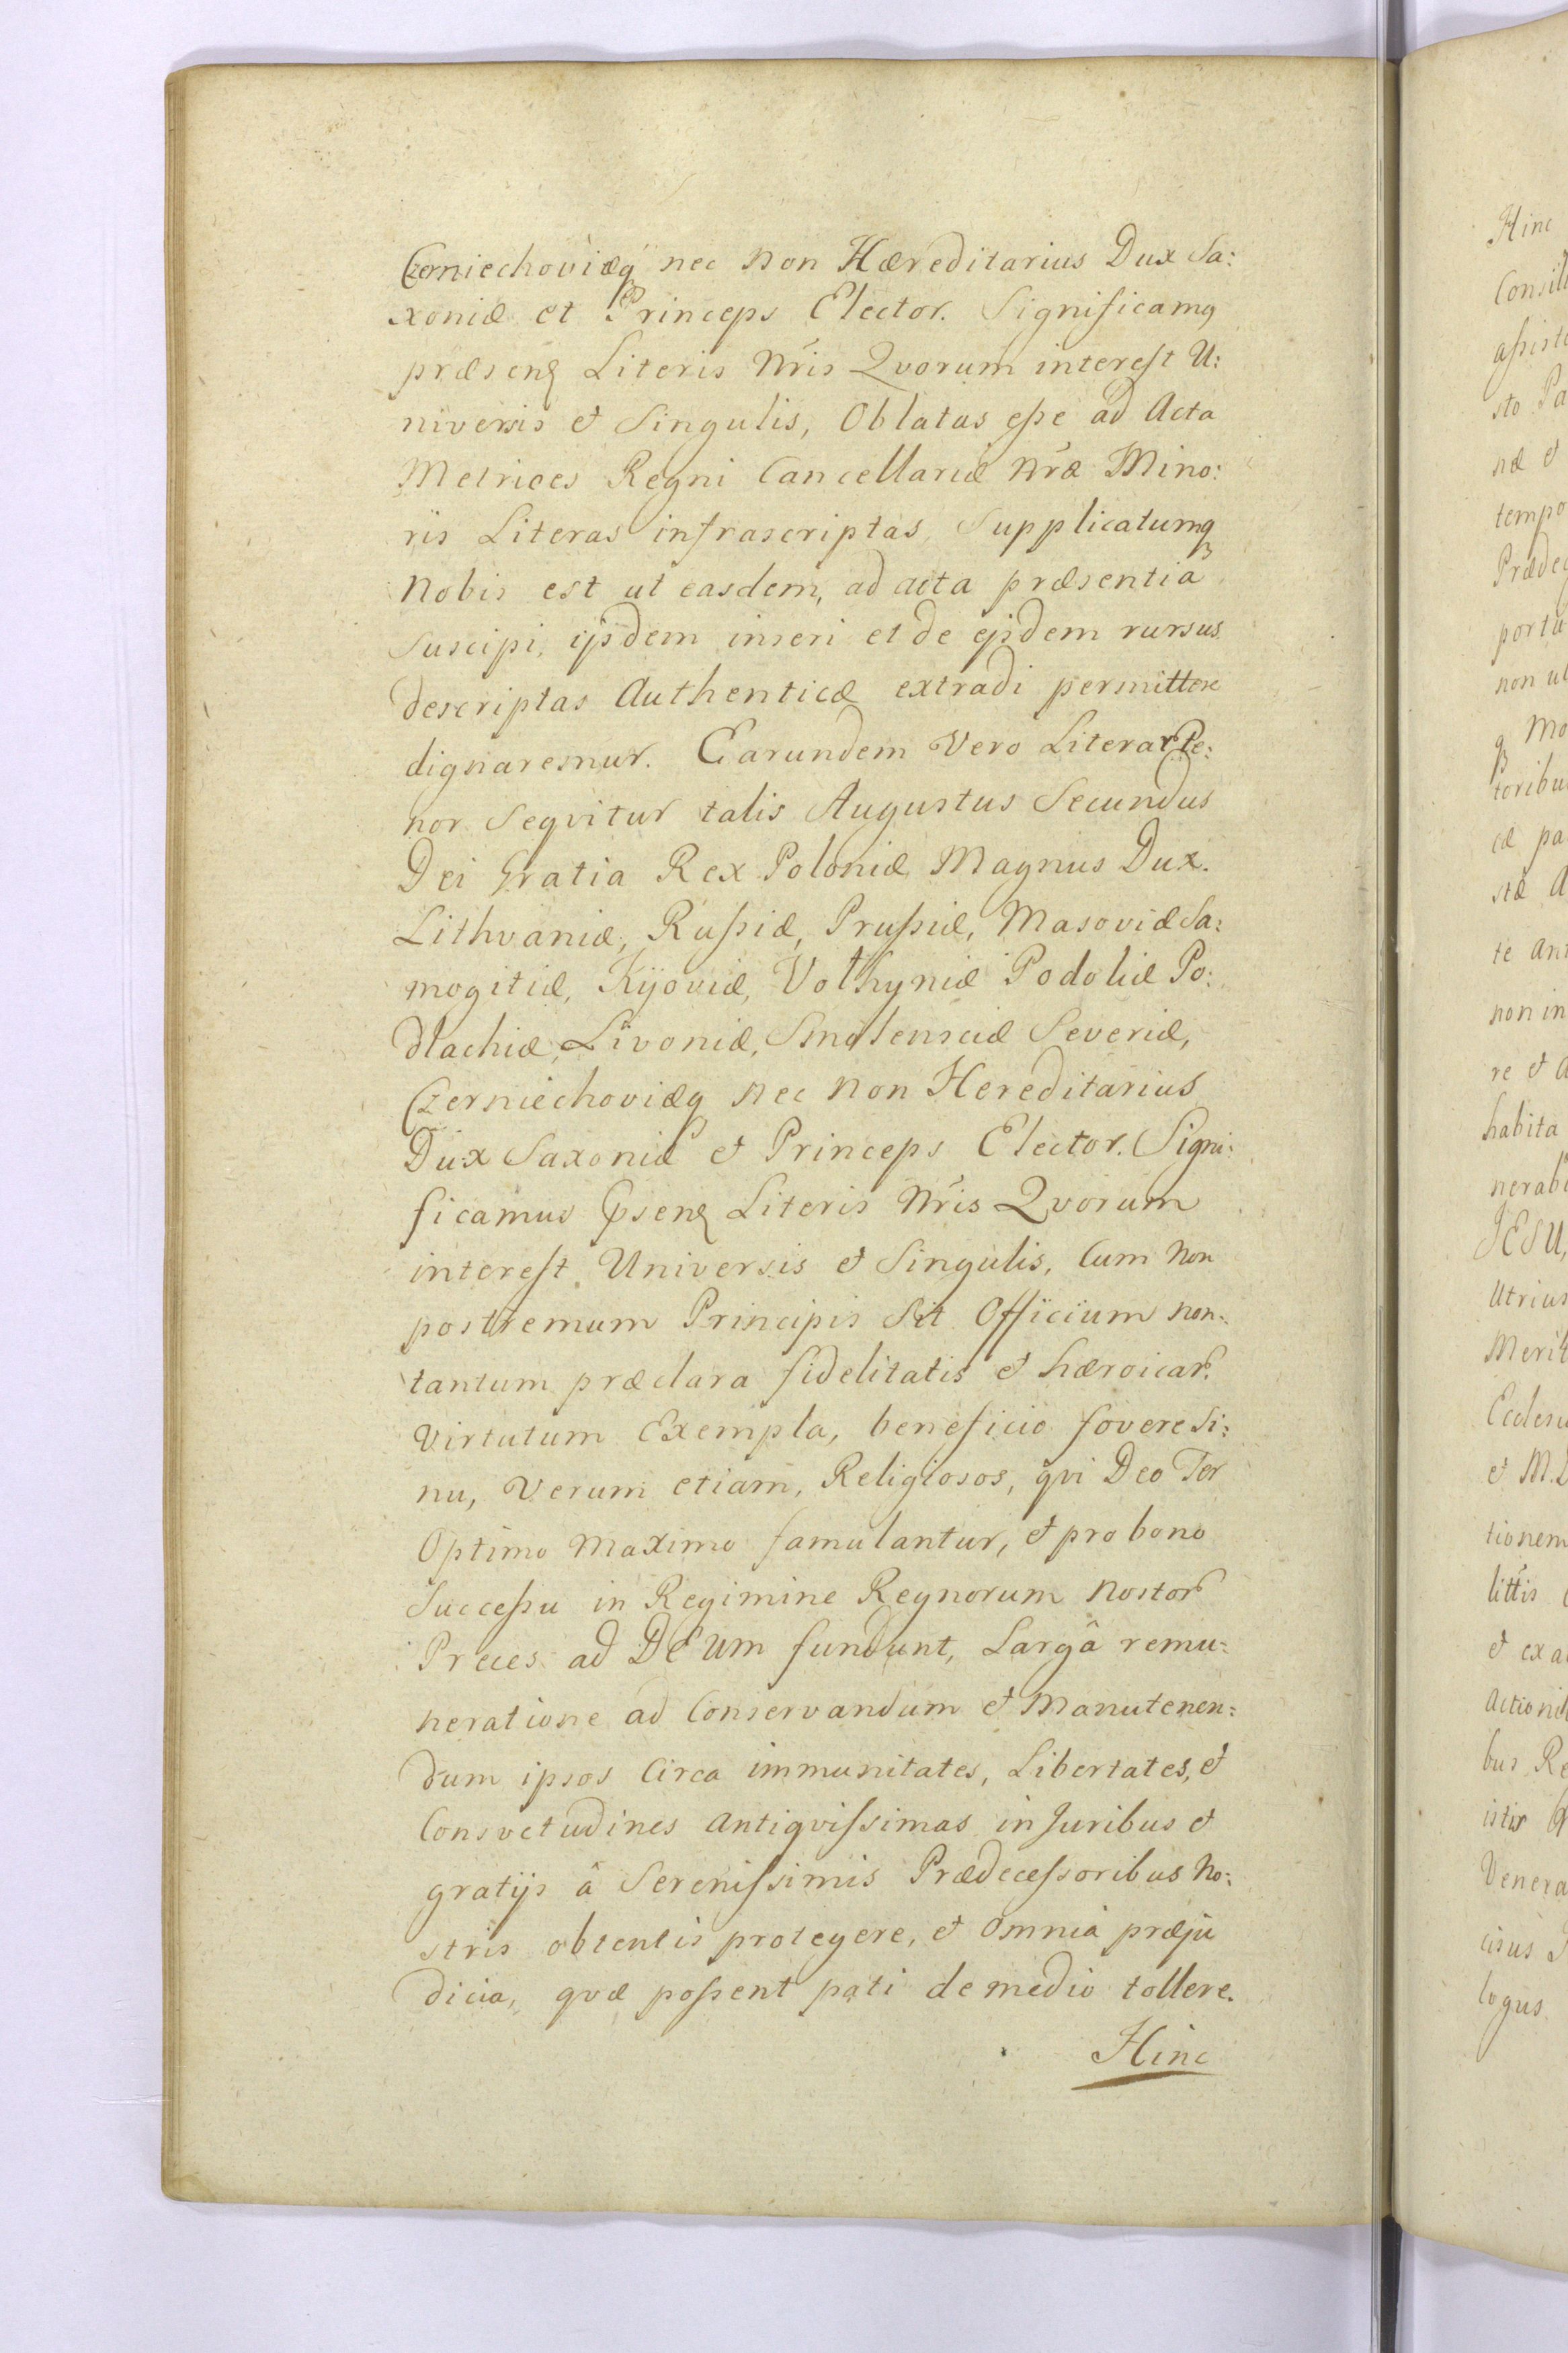 Czerniechoviæq nec non Hæreditarius Dux Sa:
xoniæ et Princeps Elector. Significamq
præsenʒ Literis Nr̃is Qvorum interest U:
niversis et Singulis, Oblatas eſse ad Acta
Metrices Regni Cancellariæ Nr̃æ Mino:
ris Literas infrascriptas, Supplicatumq
Nobis est ut easdem, ad acta præsentia
Suscipi, ijsdem inseri et de ejsdem rursus
descriptas Authenticæ extradi permittere
dignaremur. Earundem Vero Literar Te:
nor Seqvitur talis Augustus Secundus
Dei Gratia Rex Poloniæ Magnus Dux.
Lithvaniæ, Ruſsiæ, Pruſsiæ, Masoviæ Sa:
mogitiæ, Kijoviæ, Volhyniæ Podoliæ Po:
dlachiæ, Livoniæ, Smolensciæ Severiæ,
Czerniechoviæq nec non Hereditarius
Dux Saxoniæ et Princeps Elector. Signi:
ficamus Psenʒ Literis Nr̃is Qvorum
interest Universis et Singulis, Cum Non
postremum Principis Sit Officium non:
tantum præclara fidelitatis et hæroicar.
Virtutum Exempla, beneficio fovere Si:
nu, Verum etiam, Religiosos, qvi Deo Ter
Optimo Maximo famulantur, et pro bono
Succeſsu in Regimine Regnorum Nostor
Preces ad DEUm fundunt, Largâ remu:
neratione ad Conservandum et Manutenen:
dum ipsos Circa immunitates, Libertates, et
Consvetudines Antiqviſsimas in Juribus et
gratijs â Sereniſsimis Prædeceſsoribus No:
stris obtentis protegere, et Omnia præju
dicia, qvæ poſsent pati de medio tollere.
Hinc
Hinc
sto
næ et
tempo
non in
re et
habita
JESU,
et M.
tionem
et
bus
logus.